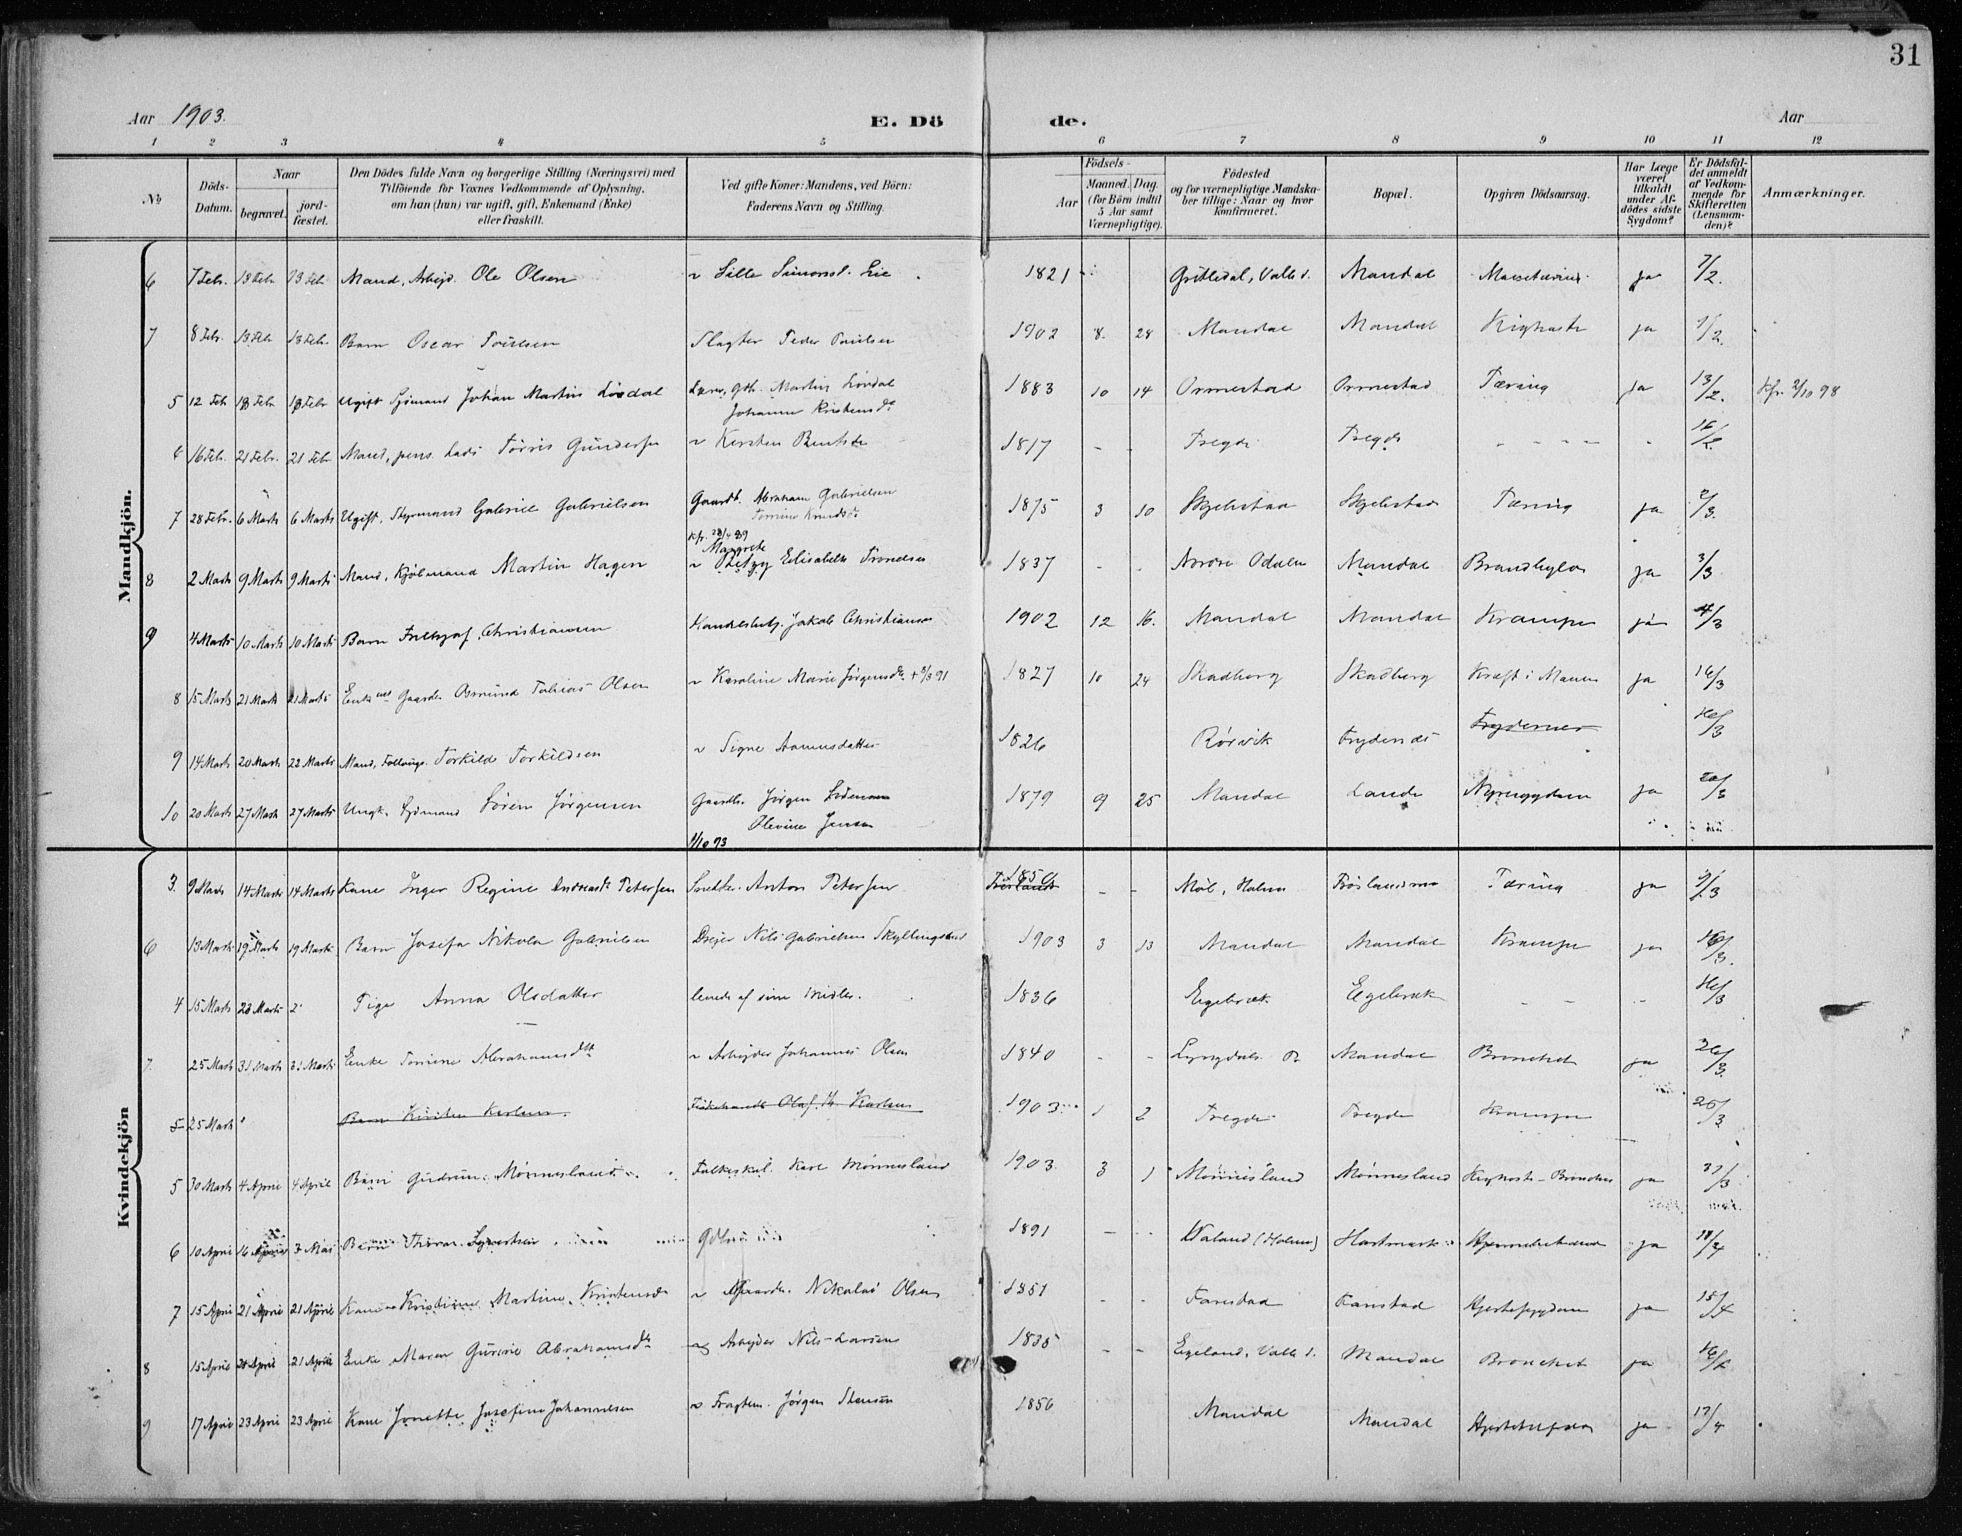 31
Aar 1903.
E. Dö de.
Aar
1 2 3 4 5 6 7 8 9 10 11 12
No
Döds-Datum.
Naar
begravet.
jord-fæstet.
Den Dödes fulde Navn og borgerlige Stilling (Næringsvei) med
Tilföiende for Voxnes Vedkommende af Oplysning,
om han (hun) var ugift, gift, Enkemand (Enke)
eller fraskilt.
Ved gifte Koner: Mandens, ved Börn:
Faderens Navn og Stilling.
Födsels-
Aar
Maaned. Dag.
(for Börn indtil 5 Aar samt Værnepligtige).
Födested
og for værnepligtige Mandska-
ber tillige: Naar og hvor
konfirmeret.
Bopæl.
Opgiven Dödsaarsag.
Har Læge været tilkaldt under Af-dödes sidste Sygdom?
Er Dödsfal-det anmeldt af Vedkom-mende for Skifteretten (Lensman-den)?
Anmærkninger.
Mandkjön.
6 7 Febr. 13 Febr 13 Febr Mand, Arbejd. Ole Olsen ~ Sille Simonsd. Lie 1821 - Vall s. Mandal ja 7/2.
7 8 Febr. 13 Febr 13 Febr. Barn Oscar Poulsen Slagter Peder Poulsen 1902 8. 28 Mandal Mandal Kighoste ja 9/2.
5 12 Feb 18 Febr 18 Febr Ugift Sjømand Johan Martin Løvdal Martin Løvdal 1883 10 14 Ormestad Ormestad Tæring ja 13/2. Kfr. 2/10 98
Johanne
4 16 Feb. 21 Febr. 21 Febr Mand, pens. Lods Tørris Gundersen ~ Kirsten Bentsd. 1817 - - Tregde Tregde - - - - - 16/2.
7 28 Febr. 6 Marts 6 Marts Ugift, Styrmand Gabriel Gabrielsen Gaardb. Abraham Gabrielsen 1875 3 10 Skjelstad Skjelstad Tæring ja 2/3.
Tomine Knudsd.
Kfr. 28/4 89
Margrete
8 2 Marts 9 Marts 9 Marts Mand, Kjøbmand Martin Hagen ~ Elisabeth Trondsen 1837 - - Nordre Odalen Mandal ja 3/3
9 4 Marts 10 Marts 10 Marts Barn Fritjof Christiansen Jakob Christiansen 1902 12 16. Mandal Mandal Krampe ja 4/3
8 15 Marts 21 Marts 21 Marts Gaardb. Osmund Tobias Olsen ~ Karoline Marie Jørgensd. + 91 1827 10 24 Skadberg Skadberg Kræft i Maven ja 16/3
9 14 Marts 20 Marts 22 Marts Mand, Torkild Torkildsen ~ Signe 1826 Rørvik Frydenes Frydenes 16/3
10 20 Marts 27 Marts 27 Marts Ungk. Sjømand Søren Jørgensen Gaardb. Jørgen 1879 9 25 Mandal Lande Nyresygdom ja 20/3
Olevine Jensen
1/10 93
Kvindekjön
3. 9 Marts 14 Marts 14 Marts Kone Inger Regine Andreasd. Petersen Snedker. Anton Petersen 1850 - - Møl, Holme Frøslandsmo Tæring ja 9/3
6 13 Marts 19 Marts 19 Marts Barn Josefa Nikola Gabrielsen Drejer Nils Gabrielsen 1903 3 13 Mandal Mandal Krampe ja 16/3.
4 15 Marts 23 Marts 2 Pige Anna Olsdatter levede af sine Midler. 1836 Egebræk Egebræk - - - 16/3
7. 25 Marts 31 Marts 31 Marts Enke Tomine Abrahamsdtr ~ Arbejder Johannes Olsen 1840 - - Lyngdal Mandal Bronchit ja 26/3.
5 25 Marts Barn Kirsten Karlsen Olaf Karlsen 1903 1 2 Tregde Tregde Krampe 26/3
5 30 Marts 4 April 4 April Barn Gudrun Mønnesland Kirkeskal. Karl Mønnesland 1903 3 1 Mønnesland Mønnesland Kighoste - Bronchit ja 31/3
6 10 April 16 April 3 Mai Barn Thora 1891 - - (Holme) Hartmark ja 11/4
7 15 April 21 April 21 April Kone Kristine Martine Kristensd. ~ Gaardb. Nikolai Olsen 1851 - - Farestad Farestad Hjertesygdom ja 15/4
8 15 April 21 April 21 April Enke Maren Gurine Abrahamsd. ~ Arbejder Nils Larsen 1835 - - Egeland, Valle s. Mandal Bronchit ja 16/4
9 17 April 23 April 23 April Kone Jonette Josefine Johannesen ~ Jørgen Stensen 1856 Mandal Mandal ja 17/4